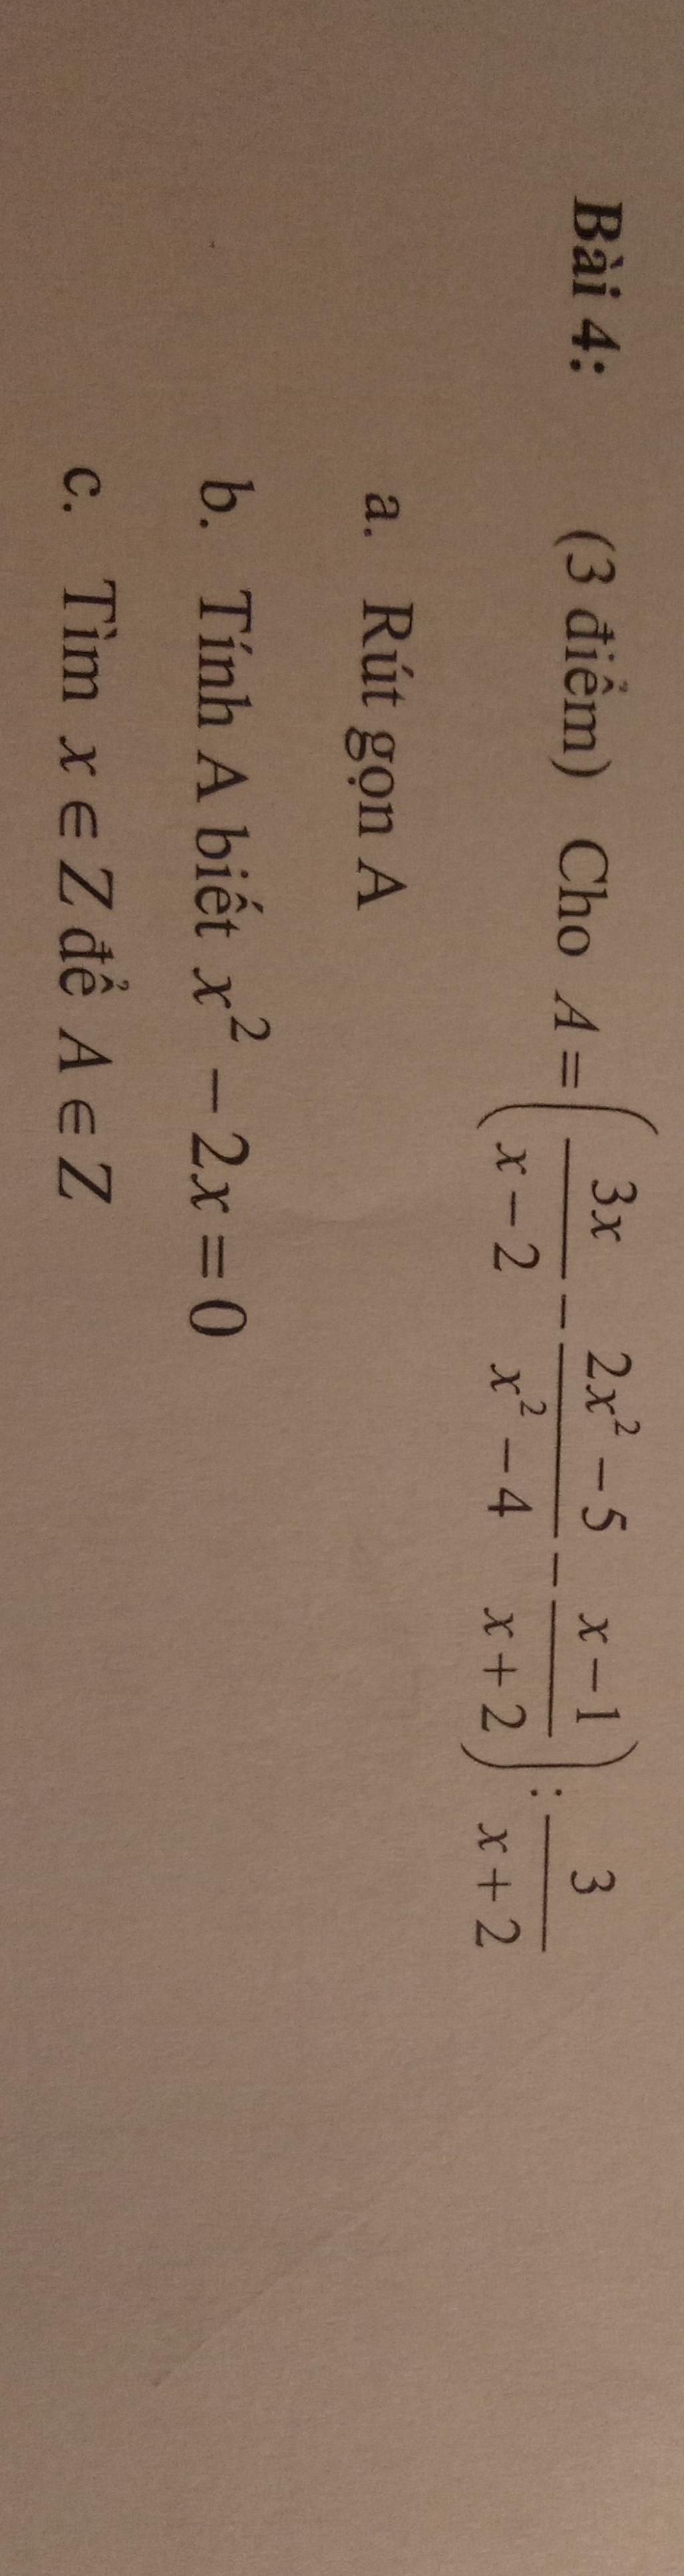 Bài 4: (3 điểm) Cho $A = \left( \frac{3x}{x-2} - \frac{2x^2-5}{x^2-4} - \frac{x-1}{x+2} \right) : \frac{3}{x+2}$
a. Rút gọn A
b. Tính A biết $x^2 - 2x = 0$
c. Tìm $x \in Z$ để $A \in Z$